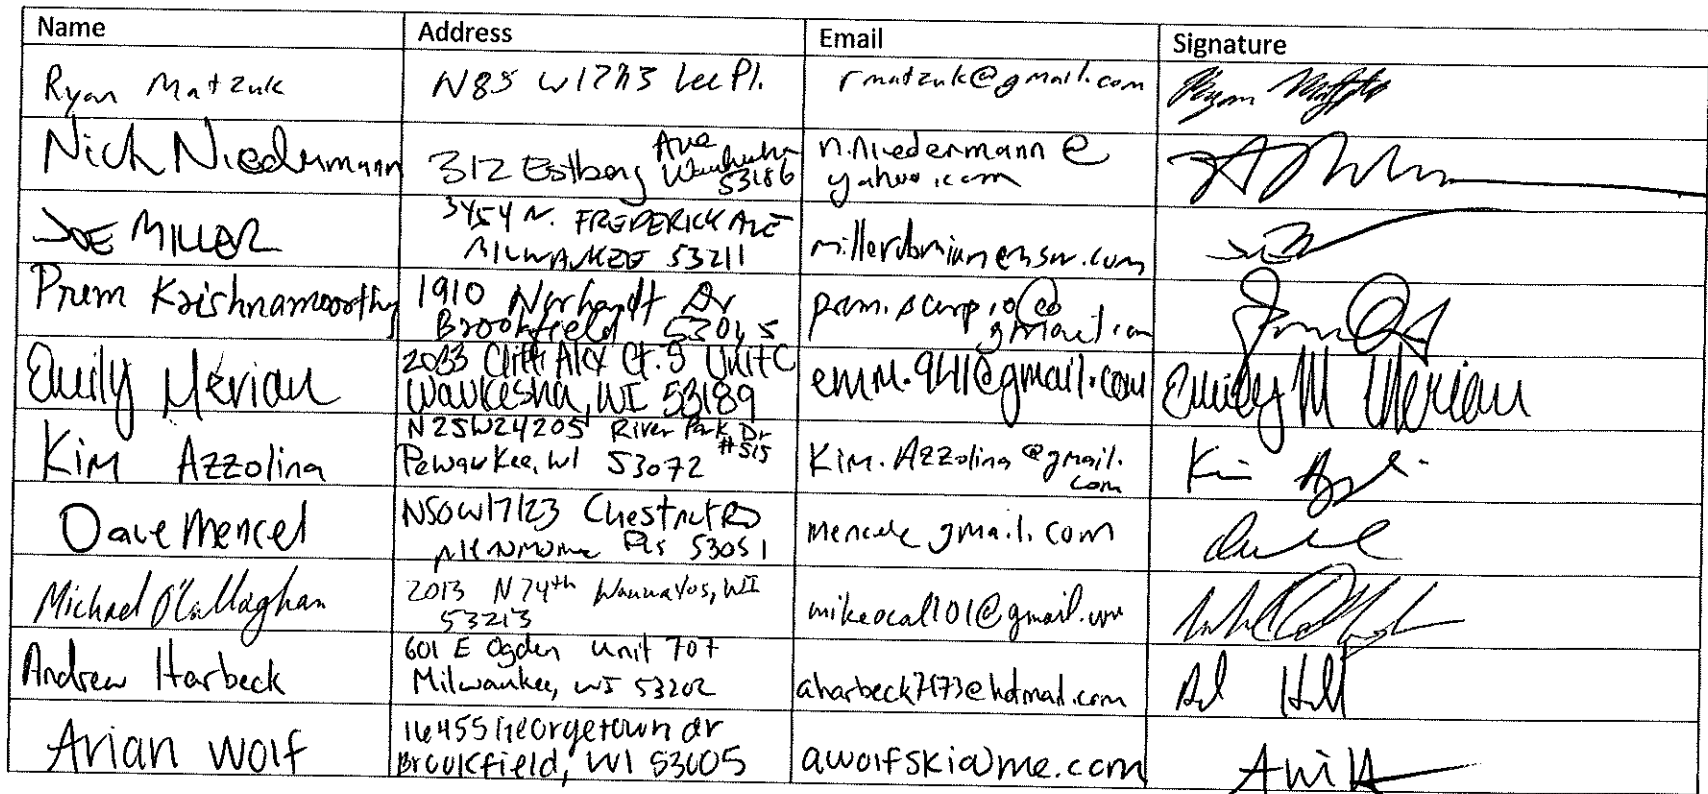 Name Address Email Signature
Ryan Matzuk N85 W17713 Lee Pl. rmatzuk@gmail.com
Nich Niedermann 312 Estberg Ave Waukesha 53186 n.niedermann@
yahoo.com
JOE MILLER 3454 N. FREDERICK AVE
MILWAUKEE 53211
Prem Krishnamoorthy 1910 Dr
Brookfield 53045 gmail.com
Emily Merian 2033 Ct. S Unit C emm.941@gmail.com Emily M Merian
Waukesha, WI 53189
Kim Azzolina N25W24205 River Park Dr #515
Pewaukee, WI 53072 Kim.Azzolina@gmail.
com
Dave Mencel N50W17123 Chestnut RD
53051 gmail.com
Michael O'Callaghan 2013 N 74th WI
53213 mikeocal101@gmail.com
Andrew Harbeck 601 E Ogden unit 707
Milwaukee, WI 53202 aharbeck7173@hotmail.com
Arian Wolf 16455 Georgetown dr
Brookfield, WI 53005 awolfski@me.com